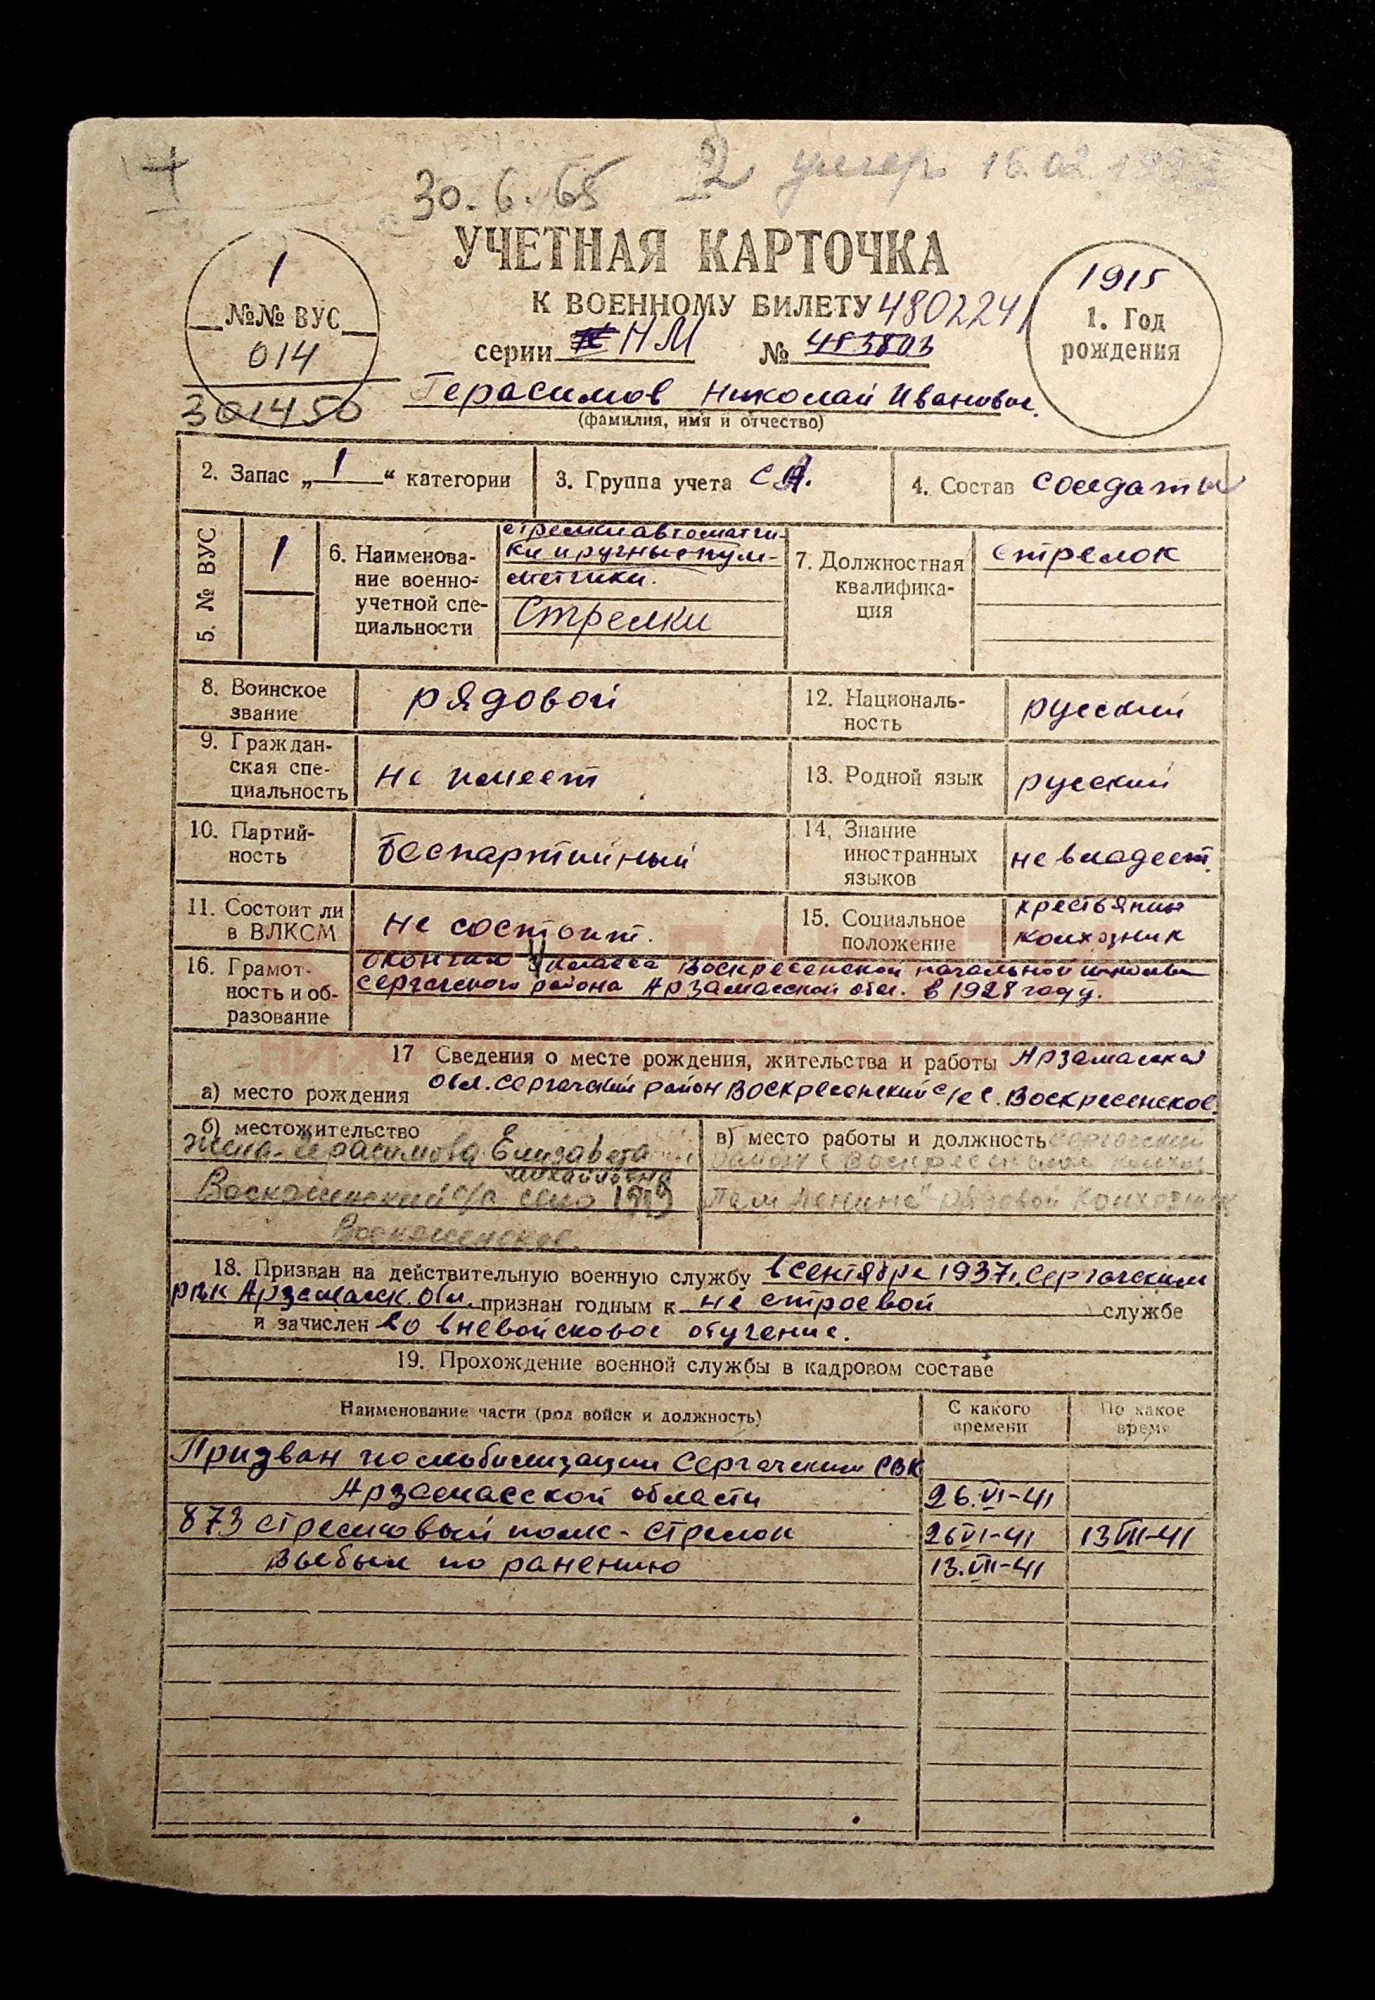 30.6.65 2 умер 16.02.199
УЧЕТНАЯ КАРТОЧКА
К ВОЕННОМУ БИЛЕТУ 480224
серии НМ № 453803
1
№№ ВУС
014
301450
1915
1. Год
рождения
Герасимов Николай Иванович.
(фамилия, имя и отчество)
2. Запас „1“ категории
3. Группа учета СА.
4. Состав солдаты
5. № ВУС
1
6. Наименова-
ние военно-
учетной спе-
циальности
стрелки автоматчи-
ки и ручные пуле-
метчики.
Стрелки
7. Должностная
квалифика-
ция
стрелок
8. Воинское
звание
рядовой
12. Националь-
ность
русский
9. Граждан-
ская спе-
циальность
не имеет
13. Родной язык
русский
10. Партий-
ность
Беспартийный
14. Знание
иностранных
языков
не владеет.
11. Состоит ли
в ВЛКСМ
не состоит.
15. Социальное
положение
крестьянин
колхозник
16. Грамот-
ность и об-
разование
окончил 4 класса Воскресенской начальной школы
Сергачского района Арзамасской обл. в 1928 году.
17 Сведения о месте рождения, жительства и работы Арзамасская
а) место рождения обл. Сергачский район Воскресенский с/с с. Воскресенское.
б) местожительство
Жена-Герасимова Елизавета
Михайловна
Воскресенский с/с село
Воскресенское.
в) место работы и должность Сергачский
район с Воскресенское колхоз
"Пам Ленина" рядовой колхозник
18. Призван на действительную военную службу в сентябре 1937г. Сергачским
рвк Арзамаск. обл. признан годным к не строевой службе
и зачислен во вневойсковое обучение.
19. Прохождение военной службы в кадровом составе
Наименование части (род войск и должность)
С какого
времени
По какое
время
Призван по мобилизации Сергачским РВК
Арзамасской области 26.VI-41
873 стрелковый полк - стрелок 26 VI-41 13 VIII-41
Выбыл по ранению 13.VIII-41